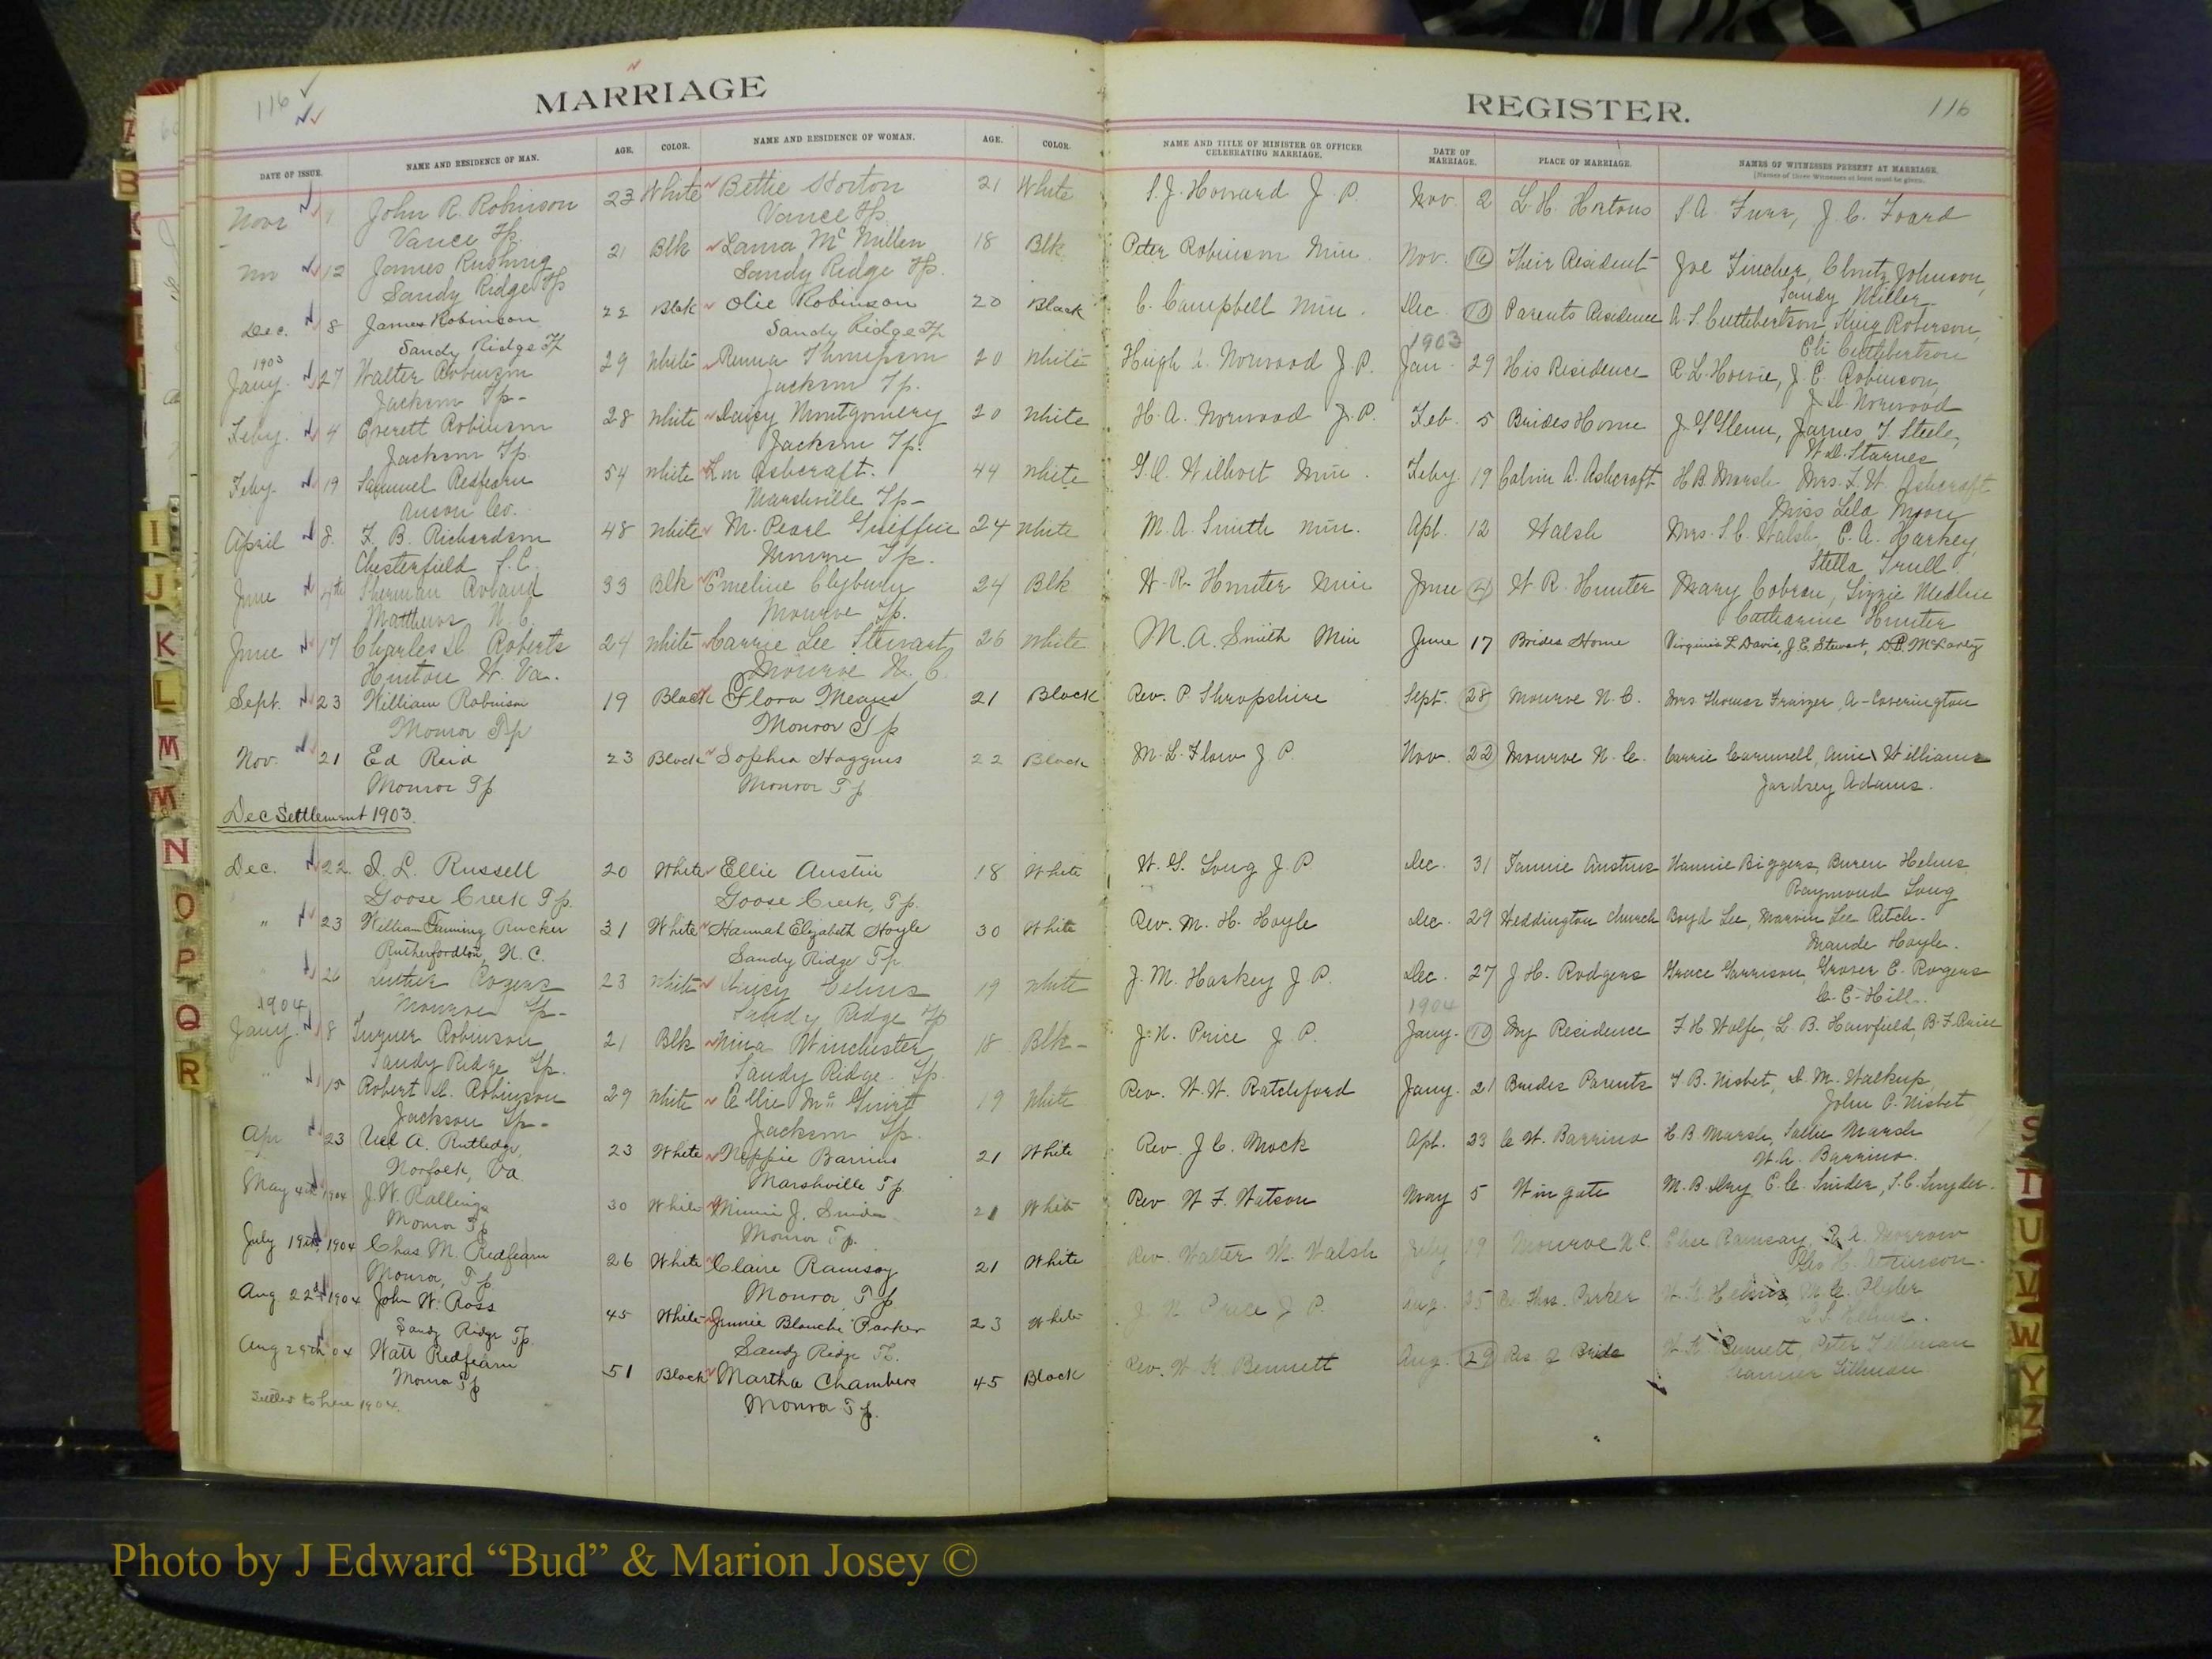 116
MARRIAGE
DATE OF ISSUE. NAME AND RESIDENCE OF MAN. AGE. COLOR. NAME AND RESIDENCE OF WOMAN. AGE. COLOR.
Novr 1 John R. Robinson 23 White Bettie Horton 21 White
Vance Tp. Vance Tp.
Nov 12 James Rushing 21 Blk Laura McMillen 18 Blk
Sandy Ridge Tp Sandy Ridge Tp.
Dec. 8 James Robinson 22 Blak Olie Robinson 20 Black
Sandy Ridge Tp Sandy Ridge Tp
1903
Jany. 27 Walter Robinson 29 White Thompson 20 White
Jackson Tp- Jackson Tp.
Feby. 4 Everett Robinson 28 White Daisy Montgomery 20 White
Jackson Tp. Jackson Tp.
Feby. 19 Samuel Redfearn 54 White Ashcraft. 44 White
Anson Co. Marshville Tp-
April 8. F. B. Richardson 48 White M. Pearl Griffin 24 White
Chesterfield S.C. Monroe Tp.
June 4th Sherman 33 Blk Emeline Clyburn 24 Blk
Matthews N.C. Monroe Tp.
June 17 Charles D. Roberts 24 White Carrie Lee Stewart 26 White
Hinton W. Va. Monroe N. C.
Sept. 23 William Robinson 19 Black Flora Means 21 Black
Monroe Tp Monroe Tp
Nov. 21 Ed Reid 23 Black Sophia 22 Black
Monroe Tp Monroe Tp
Dec Settlement 1903.
Dec. 22 L. Russell 20 White Ellie Austin 18 White
Goose Creek Tp. Goose Creek, Tp.
" 23 William Rucker 31 White Hannah Elizabeth Hoyle 30 White
Rutherfordton, N.C. Sandy Ridge Tp
" 26 Luther Rogers 23 White Helms 19 White
Monroe Tp- Sandy Ridge Tp
1904
Jany. 8 Turner Robinson 21 Blk Nina Winchester 18 Blk-
Sandy Ridge Tp. Sandy Ridge Tp.
" 15 Robert D. Robinson 29 White 19 White
Jackson Tp- Jackson Tp.
Apr 23 A. Rutledge, 23 White 21 White
Norfolk, Va. Marshville Tp
May 4th 1904 J. W. Rallings 30 White Minnie J. Snider 21 White
Monroe Tp Monroe Tp.
July 19th, 1904 Chas M. Redfearn 26 White Claire Ramsay 21 White
Monroe, Tp. Monroe Tp
Aug 22d 1904 John W. Ross 45 White Jennie Blanche Parker 23 White
Sandy Ridge Tp. Sandy Ridge Tp.
Aug 29th 04 Watt Redfearn 51 Black Martha Chambers 45 Black
Monroe Tp Monroe Tp.
Settled to here 1904.
REGISTER.
116
NAME AND TITLE OF MINISTER OR OFFICER CELEBRATING MARRIAGE. DATE OF MARRIAGE. PLACE OF MARRIAGE. NAMES OF WITNESSES PRESENT AT MARRIAGE.
[Names of three Witnesses at least must be given.
S. J. Howard J. P. Nov. 2 L. H. Hortons S. A. Furr, J. C. Foard
Peter Robinson Min. Nov. Their Resident Joe Fincher, Johnson,
Sandy Miller
C. Campbell Min. Dec. 10 Parents Residence A. S. Cuthbertson, King Roberson,
Eli Cuthbertson
1903
Hugh Norwood J. P. Jan. 29 His Residence R. L. Howie, J. E. Robinson,
Norwood
H. A. Norwood J. P. Feb. 5 Brides Home J. Glenn, James T. Steele,
W. D. Starnes
Min. Feby 19 Calvin A. Ashcraft H. B. Marsh Mrs. Ashcraft
Miss Lila Moore
M. A. Smith Min. Apl. 12 Walsh Mrs. S. C. Walsh, E. A. Harkey,
Stella Trull
W. R. Hunter Min June 4 W. R. Hunter Mary Lizzie Medlin
Catharine Hunter
M. A. Smith Min June 17 Brides Home Virginia L Davis, J. E. Stewart,
Rev. P Shropshire Sept. 28 Monroe N. C. Mrs Thomas Frazer, A- Coverington
M. L. Flow J P. Nov. 22 Monroe N. C. Carrie Williams
Adams.
W. G. Long J P Dec. 31 Austins Nannie Biggers, Buren Helms
Raymond Long
Rev. M. H. Hoyle Dec. 29 Weddington Church Boyd Lee, Marvin Lee Ritch-
Maude Hoyle.
J. M. Harkey J P. Dec. 27 J. H. Rodgers Grace Garrison, Grover C. Rogers
C. E. Hill.
1904
J. N. Price J P. Jany. 10 My Residence F. H. Wolfe, L. B. B. F. Price
Rev. W. W. Ratchford Jany. 21 Brides Parents T. B. Nisbet, D. M. Walkup,
John Nisbet
Rev. J. C. Mock Apl. 23 C. W. Barrino H. B. Marsh, Sallie Marsh
W. A. Barrino.
Rev W. F. Watson May 5 Wingate M. B. Dry, C. C. Snider, S. C. Snyder-
Rev. Walter M. Walsh July 19 Monroe N. C. Else Ramsay, A. Morrow
J. N. Price J P. Aug. 25 Res. Thos. Parker W. Helms, M. C. Plyler
Helms.
Rev. W. K. Bennett Aug. 29 Res of Bride W. K. Bennett, Peter Tillman
Tillman
I
J
K
L
M
Mc
N
O
P
Q
R
S
T
U
V
W
Y
Z
Photo by J Edward “Bud” & Marion Josey ©